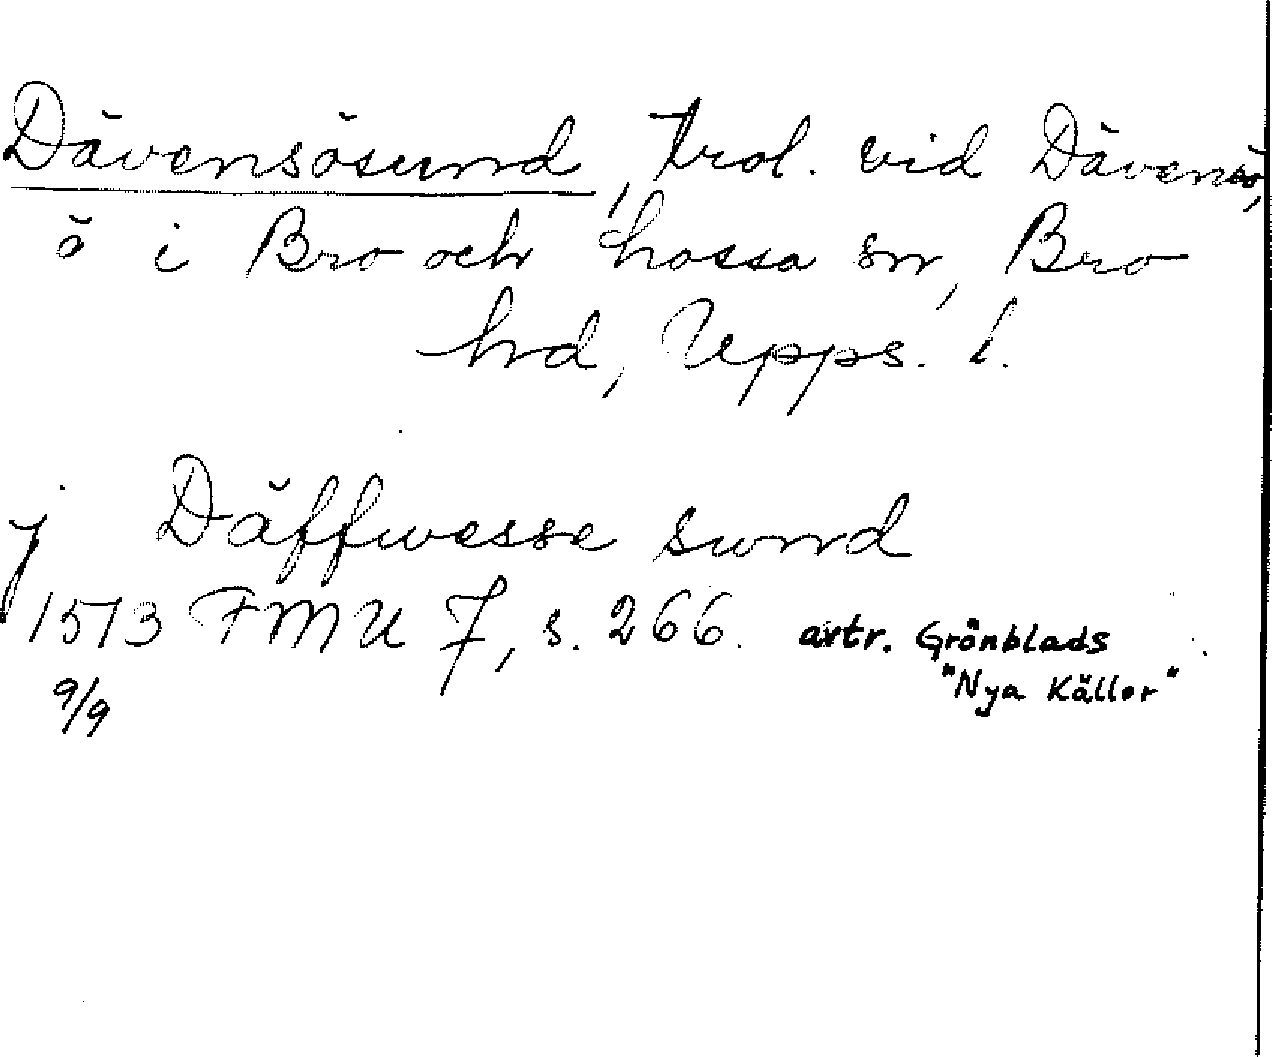 Dävensösund, trol. vid Dävensö,
ö i Bro och Lossa sn, Bro
hd, Upps. l.
j Däffwesse sund
1513 FMU 7, s. 266. avtr. Grönblads
"Nya Källor"
9/9